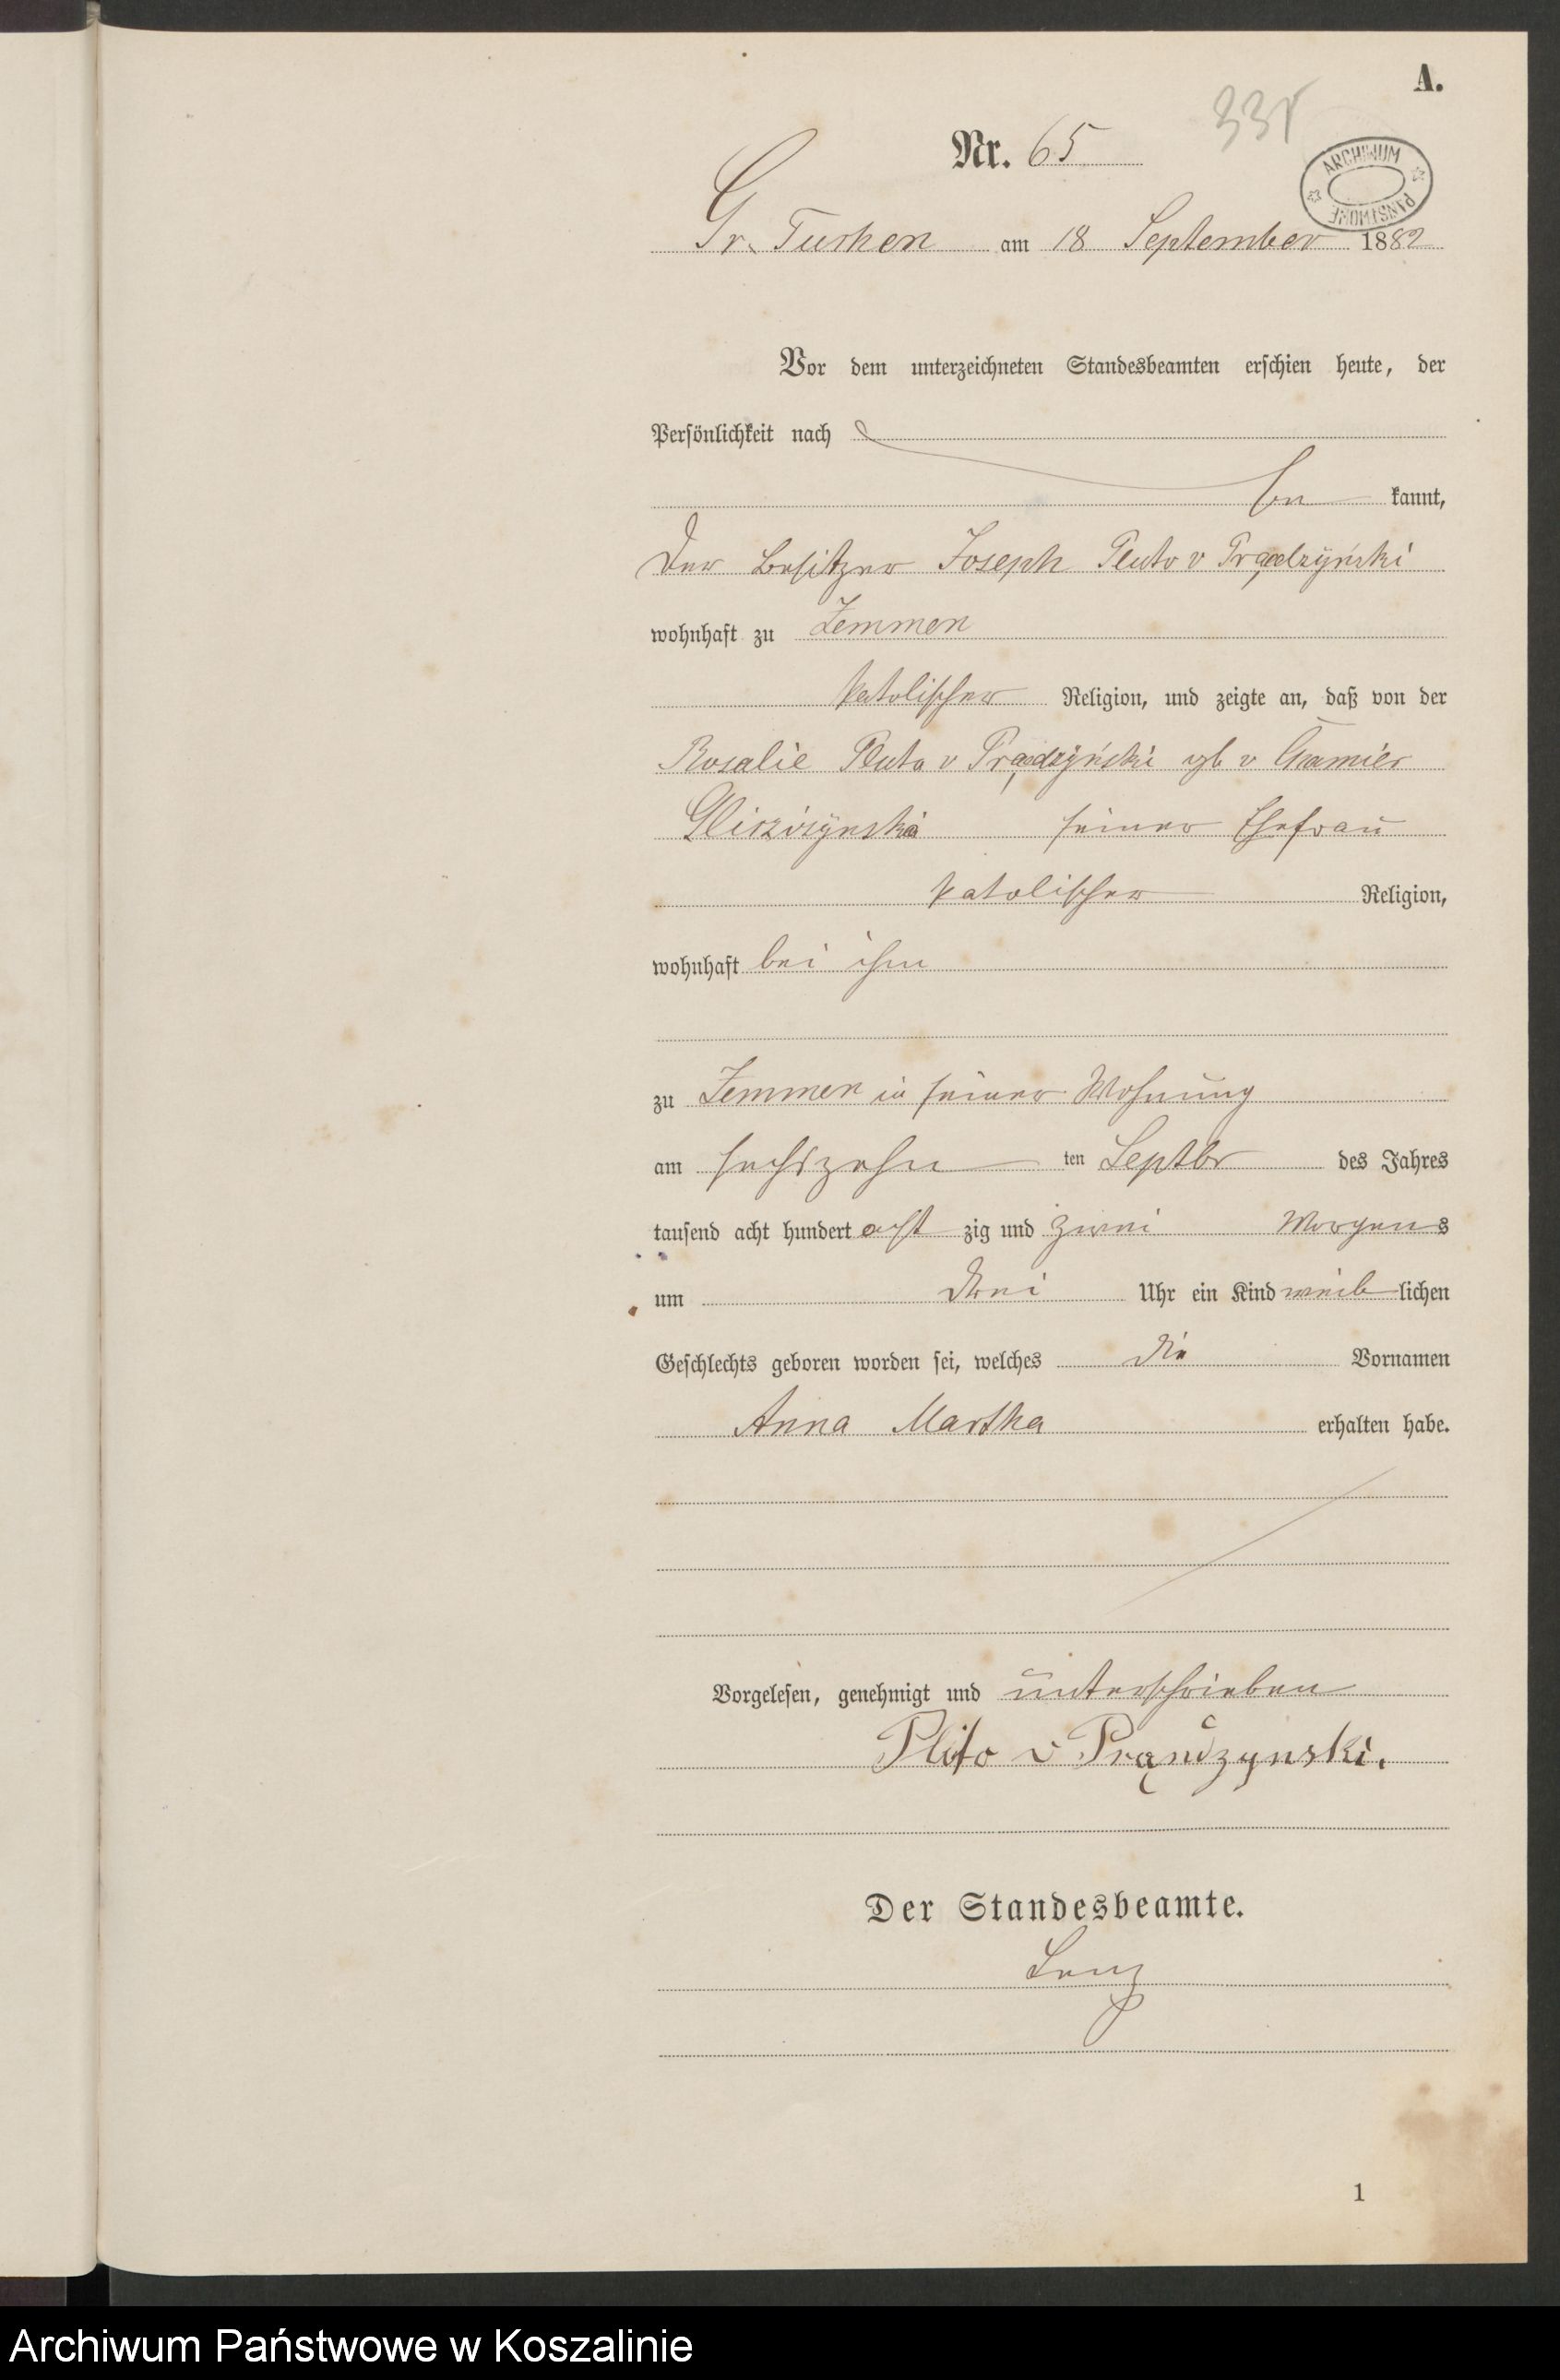 A.
331
Nr. 65
ARCHIWUM PAŃSTWOWE
Gr. Tuchen am 18 September 1882
Vor dem unterzeichneten Standesbeamten erschien heute, der
Persönlichkeit nach
be kannt,
der Besitzer Joseph Pluto v Prądzyński
wohnhaft zu Zemmen
katolischer Religion, und zeigte an, daß von der
Rosalie Pluto v Prądzyński geb v
seiner Ehefrau
katolischer Religion,
wohnhaft bei ihm
zu Zemmen in seiner Wohnung
am sechszehn ten Septbr des Jahres
tausend acht hundert acht zig und zwei Morgens
um drei Uhr ein Kind weib lichen
Geschlechts geboren worden sei, welches die Vornamen
Anna Martha erhalten habe.
Vorgelesen, genehmigt und unterschrieben
Pluto v Prądzynski.
Der Standesbeamte.
Lenz
1
Archiwum Państwowe w Koszalinie